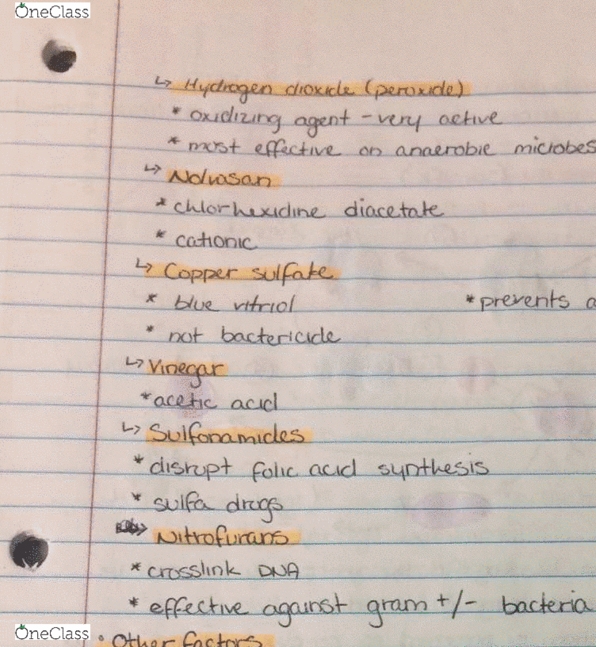 OneClass
↳ Hydrogen dioxide (peroxide)
* oxidizing agent - very active
* most effective on anaerobic microbes
↳ Nolvasan
* chlorhexidine diacetate
* cationic
↳ Copper sulfate
* blue vitriol * prevents
* not bactericide
↳ Vinegar
* acetic acid
↳ Sulfonamides
* disrupt folic acid synthesis
* sulfa drugs
Nitrofurans
* crosslink DNA
* effective against gram +/- bacteria
OneClass • Other factors